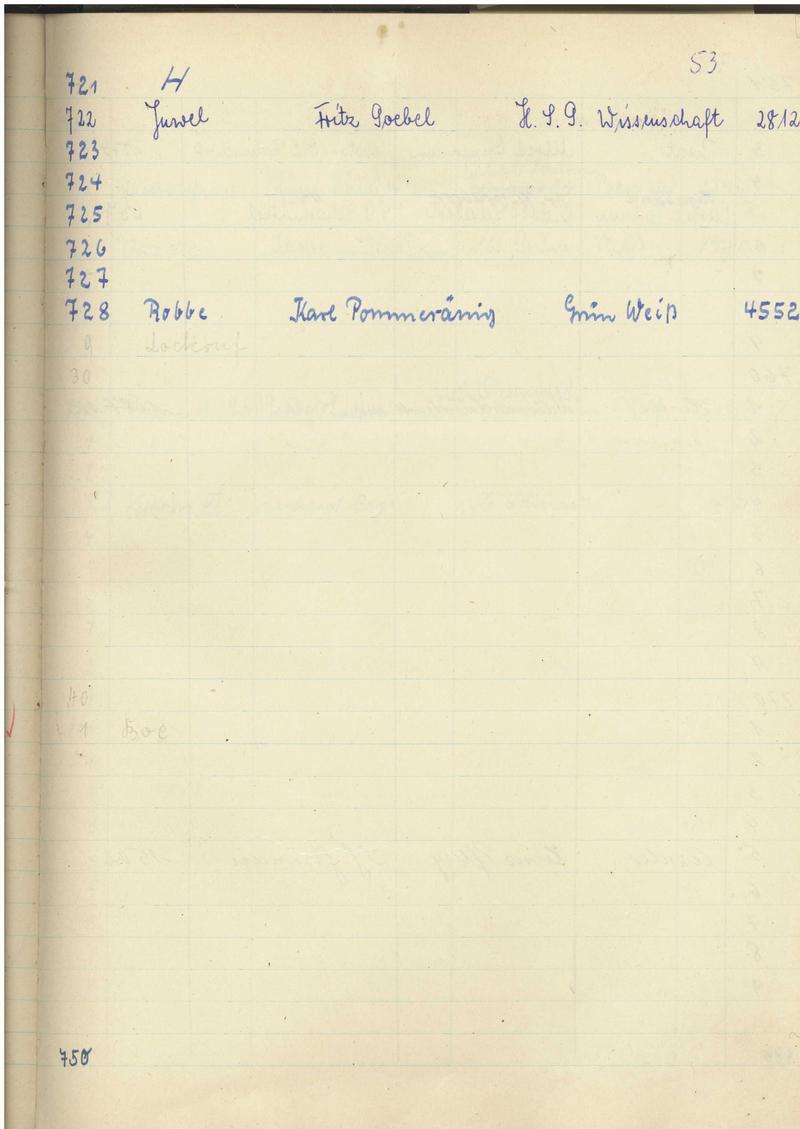 53
721 H
722 Juwel Fritz Goebel H. S. G. Wissenschaft 2812
723
724
725
726
727
728 Robbe Karl Pommeränig Grün Weiß 4552
9 Lockruf
30
40
1 Boe
750